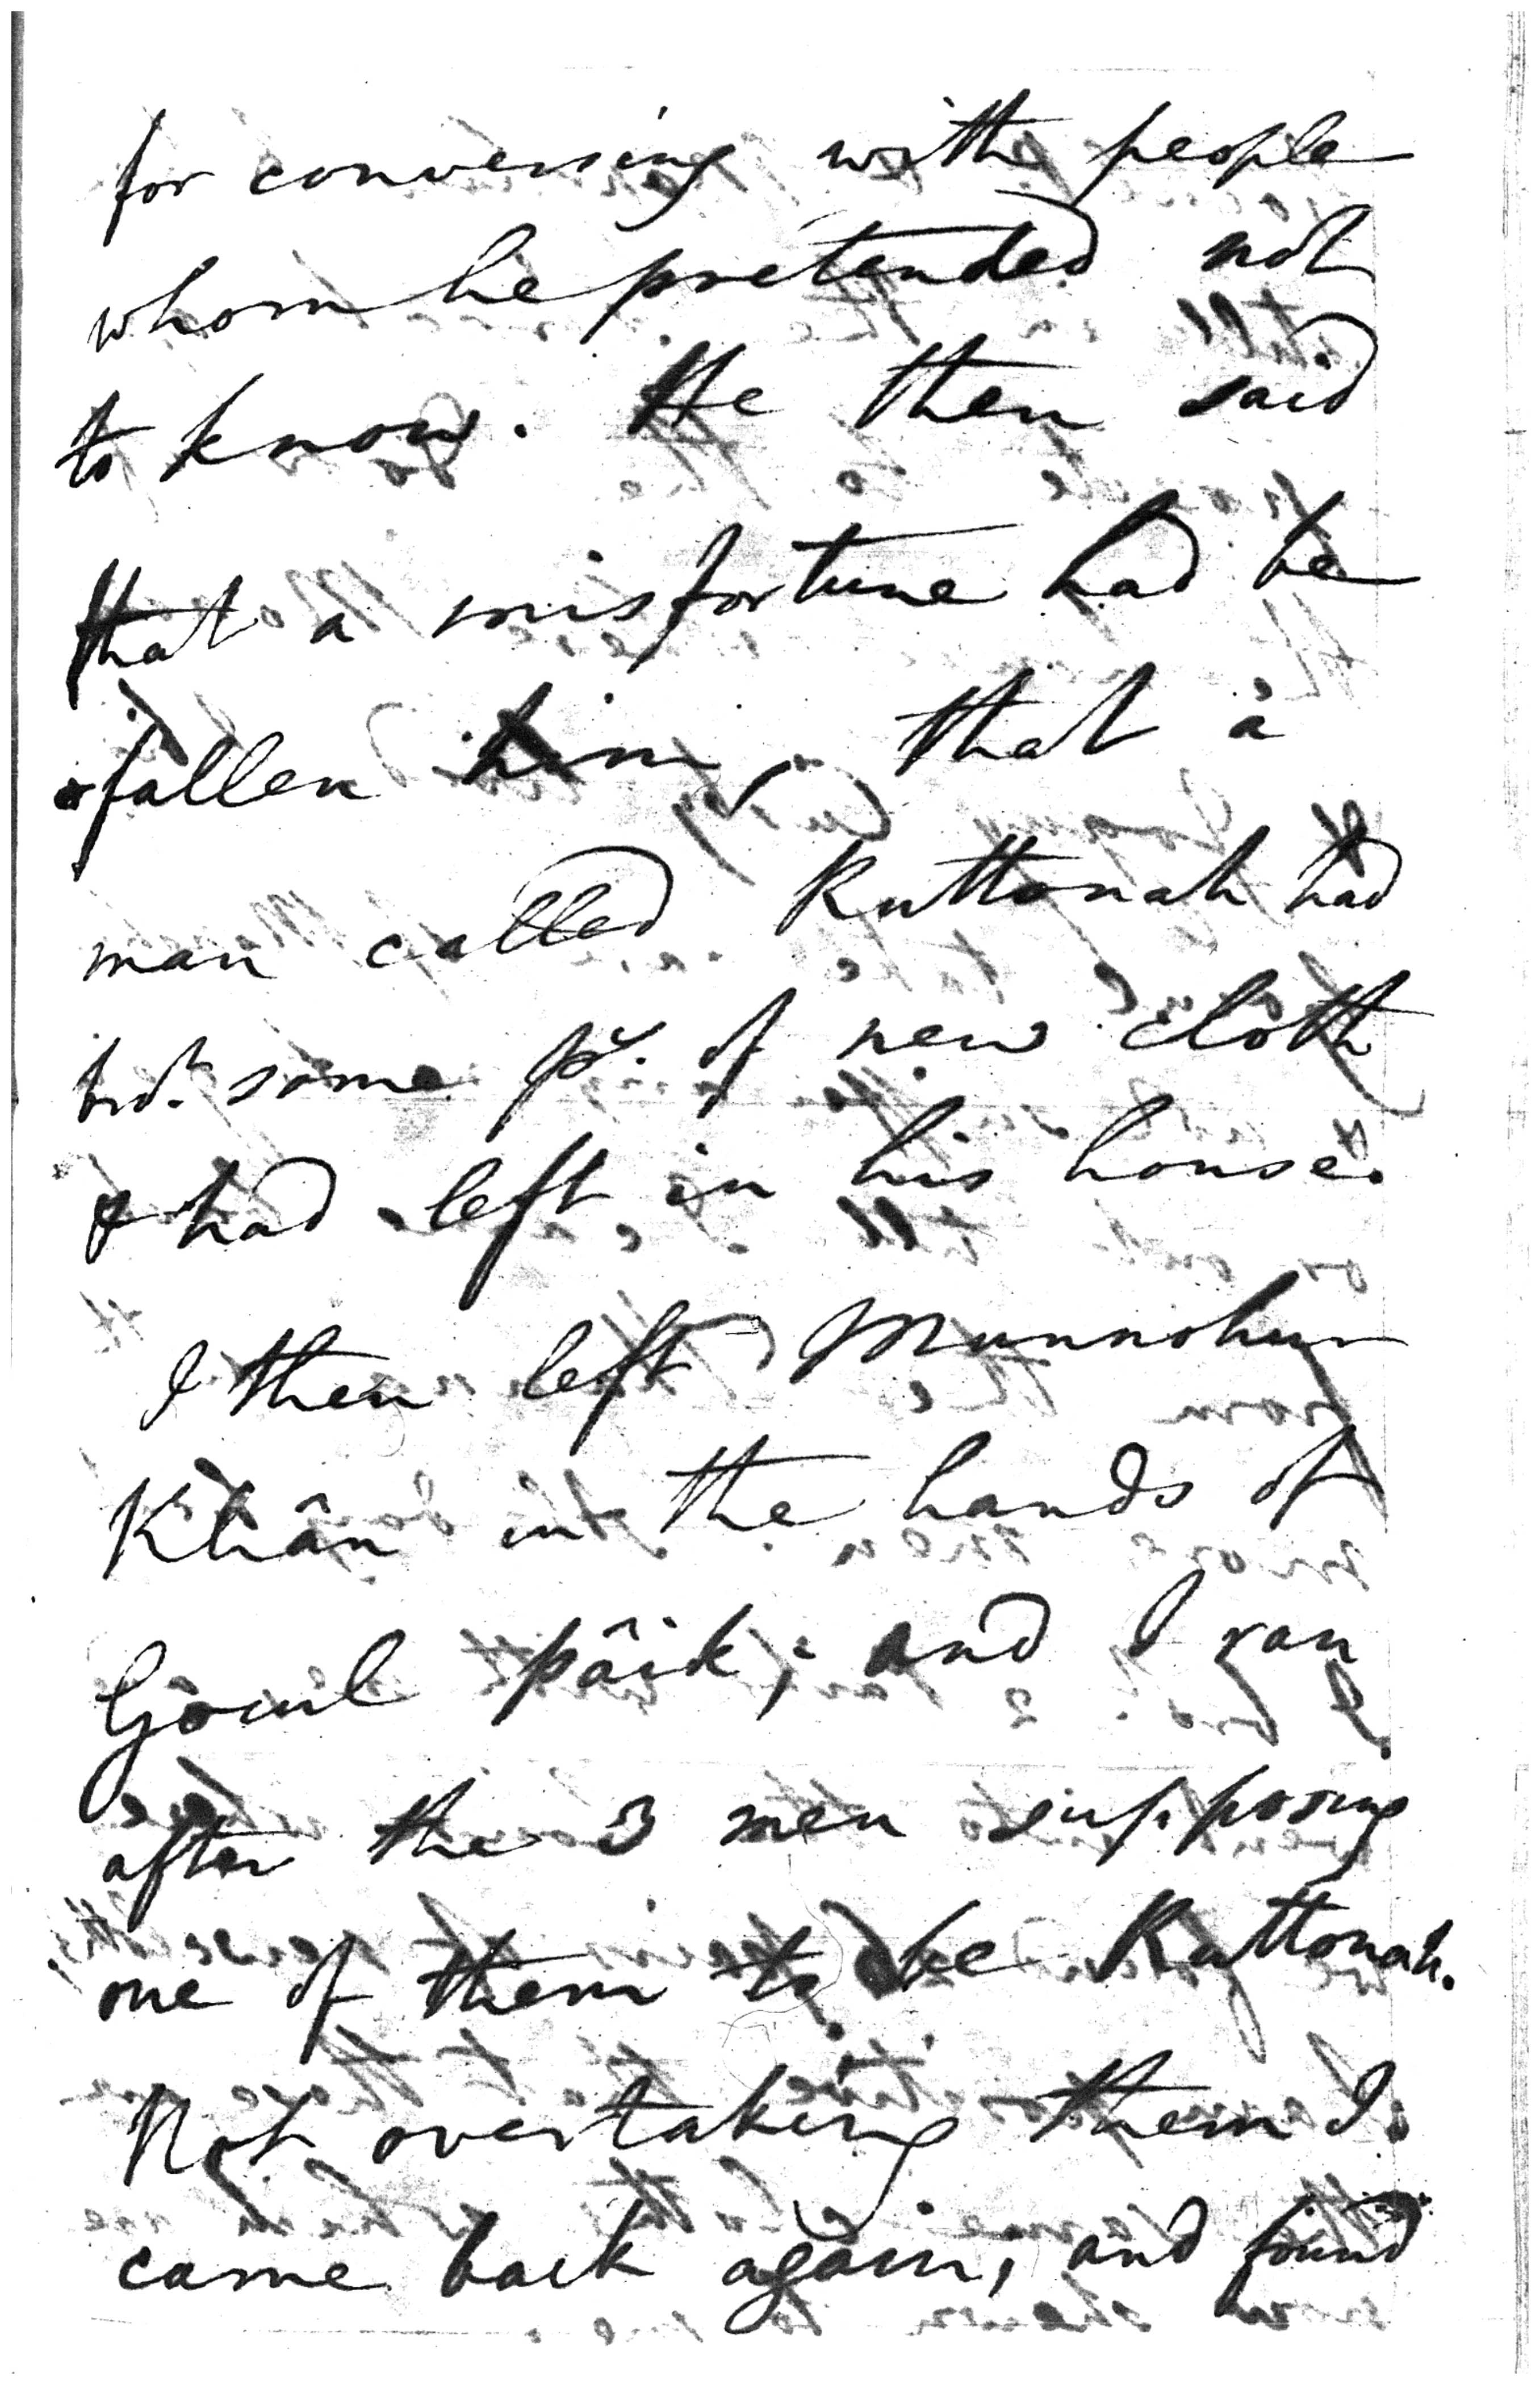 for conversing with people
whom he pretended not
to know. He then said
that a misfortune had be
fallen him, that a
man called Ruttonah had
bro.t some p.s of new cloth
& had left in his house.
I then left Munnohur
Khân in the hands of
Gôcul pâik; and I ran
after the 3 men supposing
one of them to be Ruttonah.
Not overtaking them I
came back again, and found